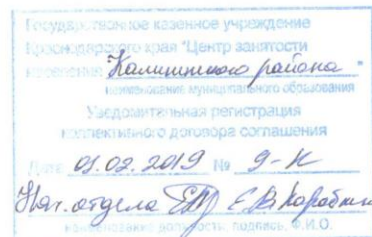 Государственное казенное учреждение
Краснодарского края "Центр занятости
населения Калининского района"
наименование муниципального образования
Уведомительная регистрация
коллективного договора соглашения
Дата 01.02.2019 № 9-К
Нач. отдела Е.В. Карабан
наименование должности, подпись, Ф.И.О.